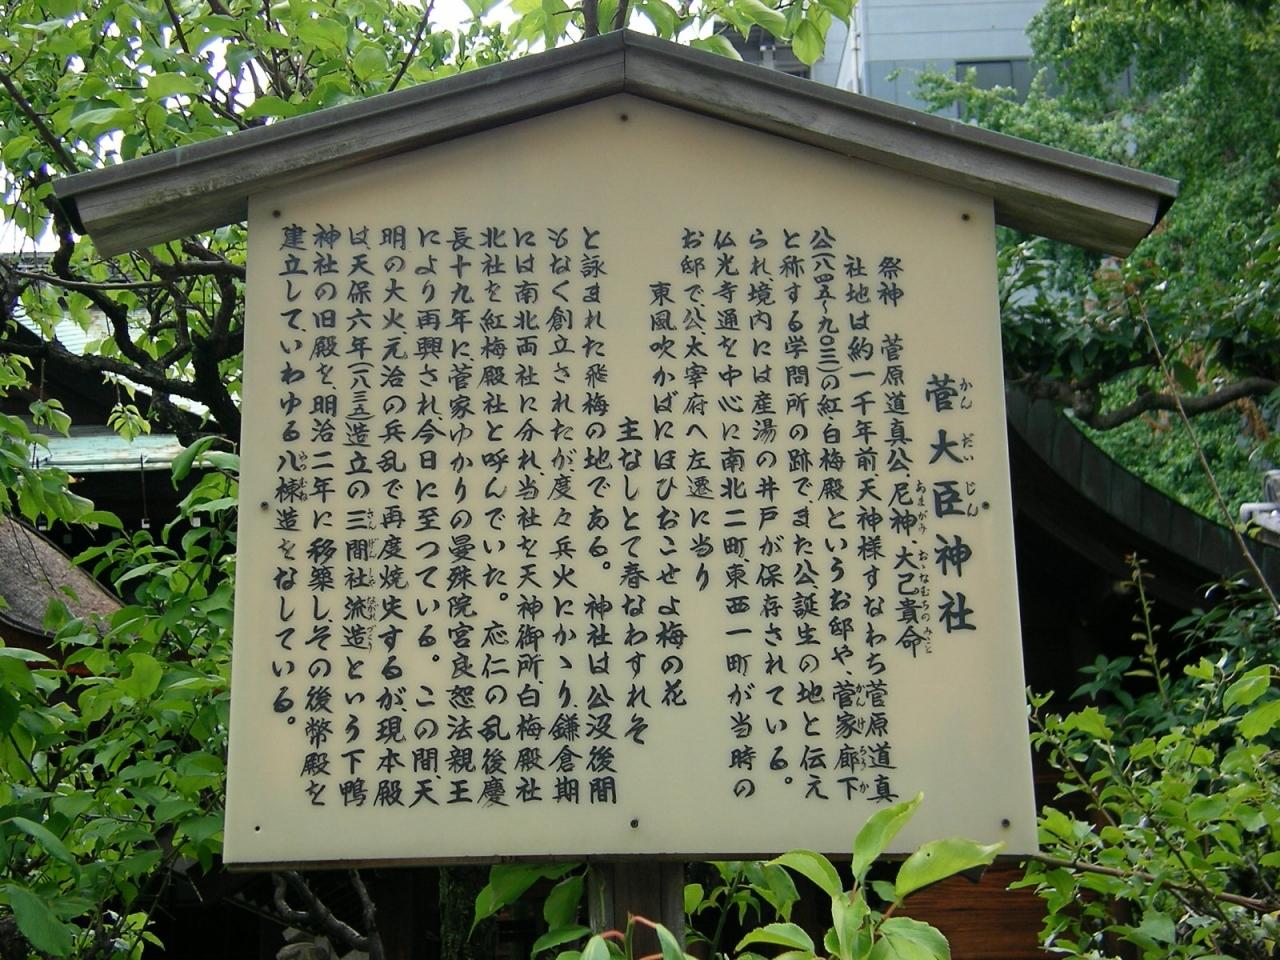 菅大臣神社
かんだいじん
祭神 菅原道真公、尼神 大己貴命
あまがみ おおなむちのみこと
社地は約一千年前天神様すなわち菅原道真
公(八四五〜九〇三)の紅白梅殿というお邸や、菅家廊下
かんけろうか
と称する学問所の跡で、また公誕生の地と伝え
られ、境内には産湯の井戸が保存されている。
仏光寺通を中心に南北二町、東西一町が当時の
お邸で、公、太宰府へ左遷に当り
東風吹かばにほひおこせよ梅の花
主なしとて春なわすれそ
と詠まれた飛梅の地である。神社は公没後間
もなく創立されたが度々兵火にかゝり、鎌倉期
には南北両社に分れ、当社を天神御所、白梅殿社
北社を紅梅殿社と呼んでいた。応仁の乱後慶
長十九年に、菅家ゆかりの曼殊院宮良恕法親王
により再興され、今日に至つている。この間、天
明の大火元治の兵乱で再度焼失するが、現本殿
は、天保六年(一八三五)造立の三間社流造という下鴨
さんげんしゃながれづくり
神社の旧殿を明治二年に移築し、その後幣殿を
建立して、いわゆる八棟造をなしている。
やつむね